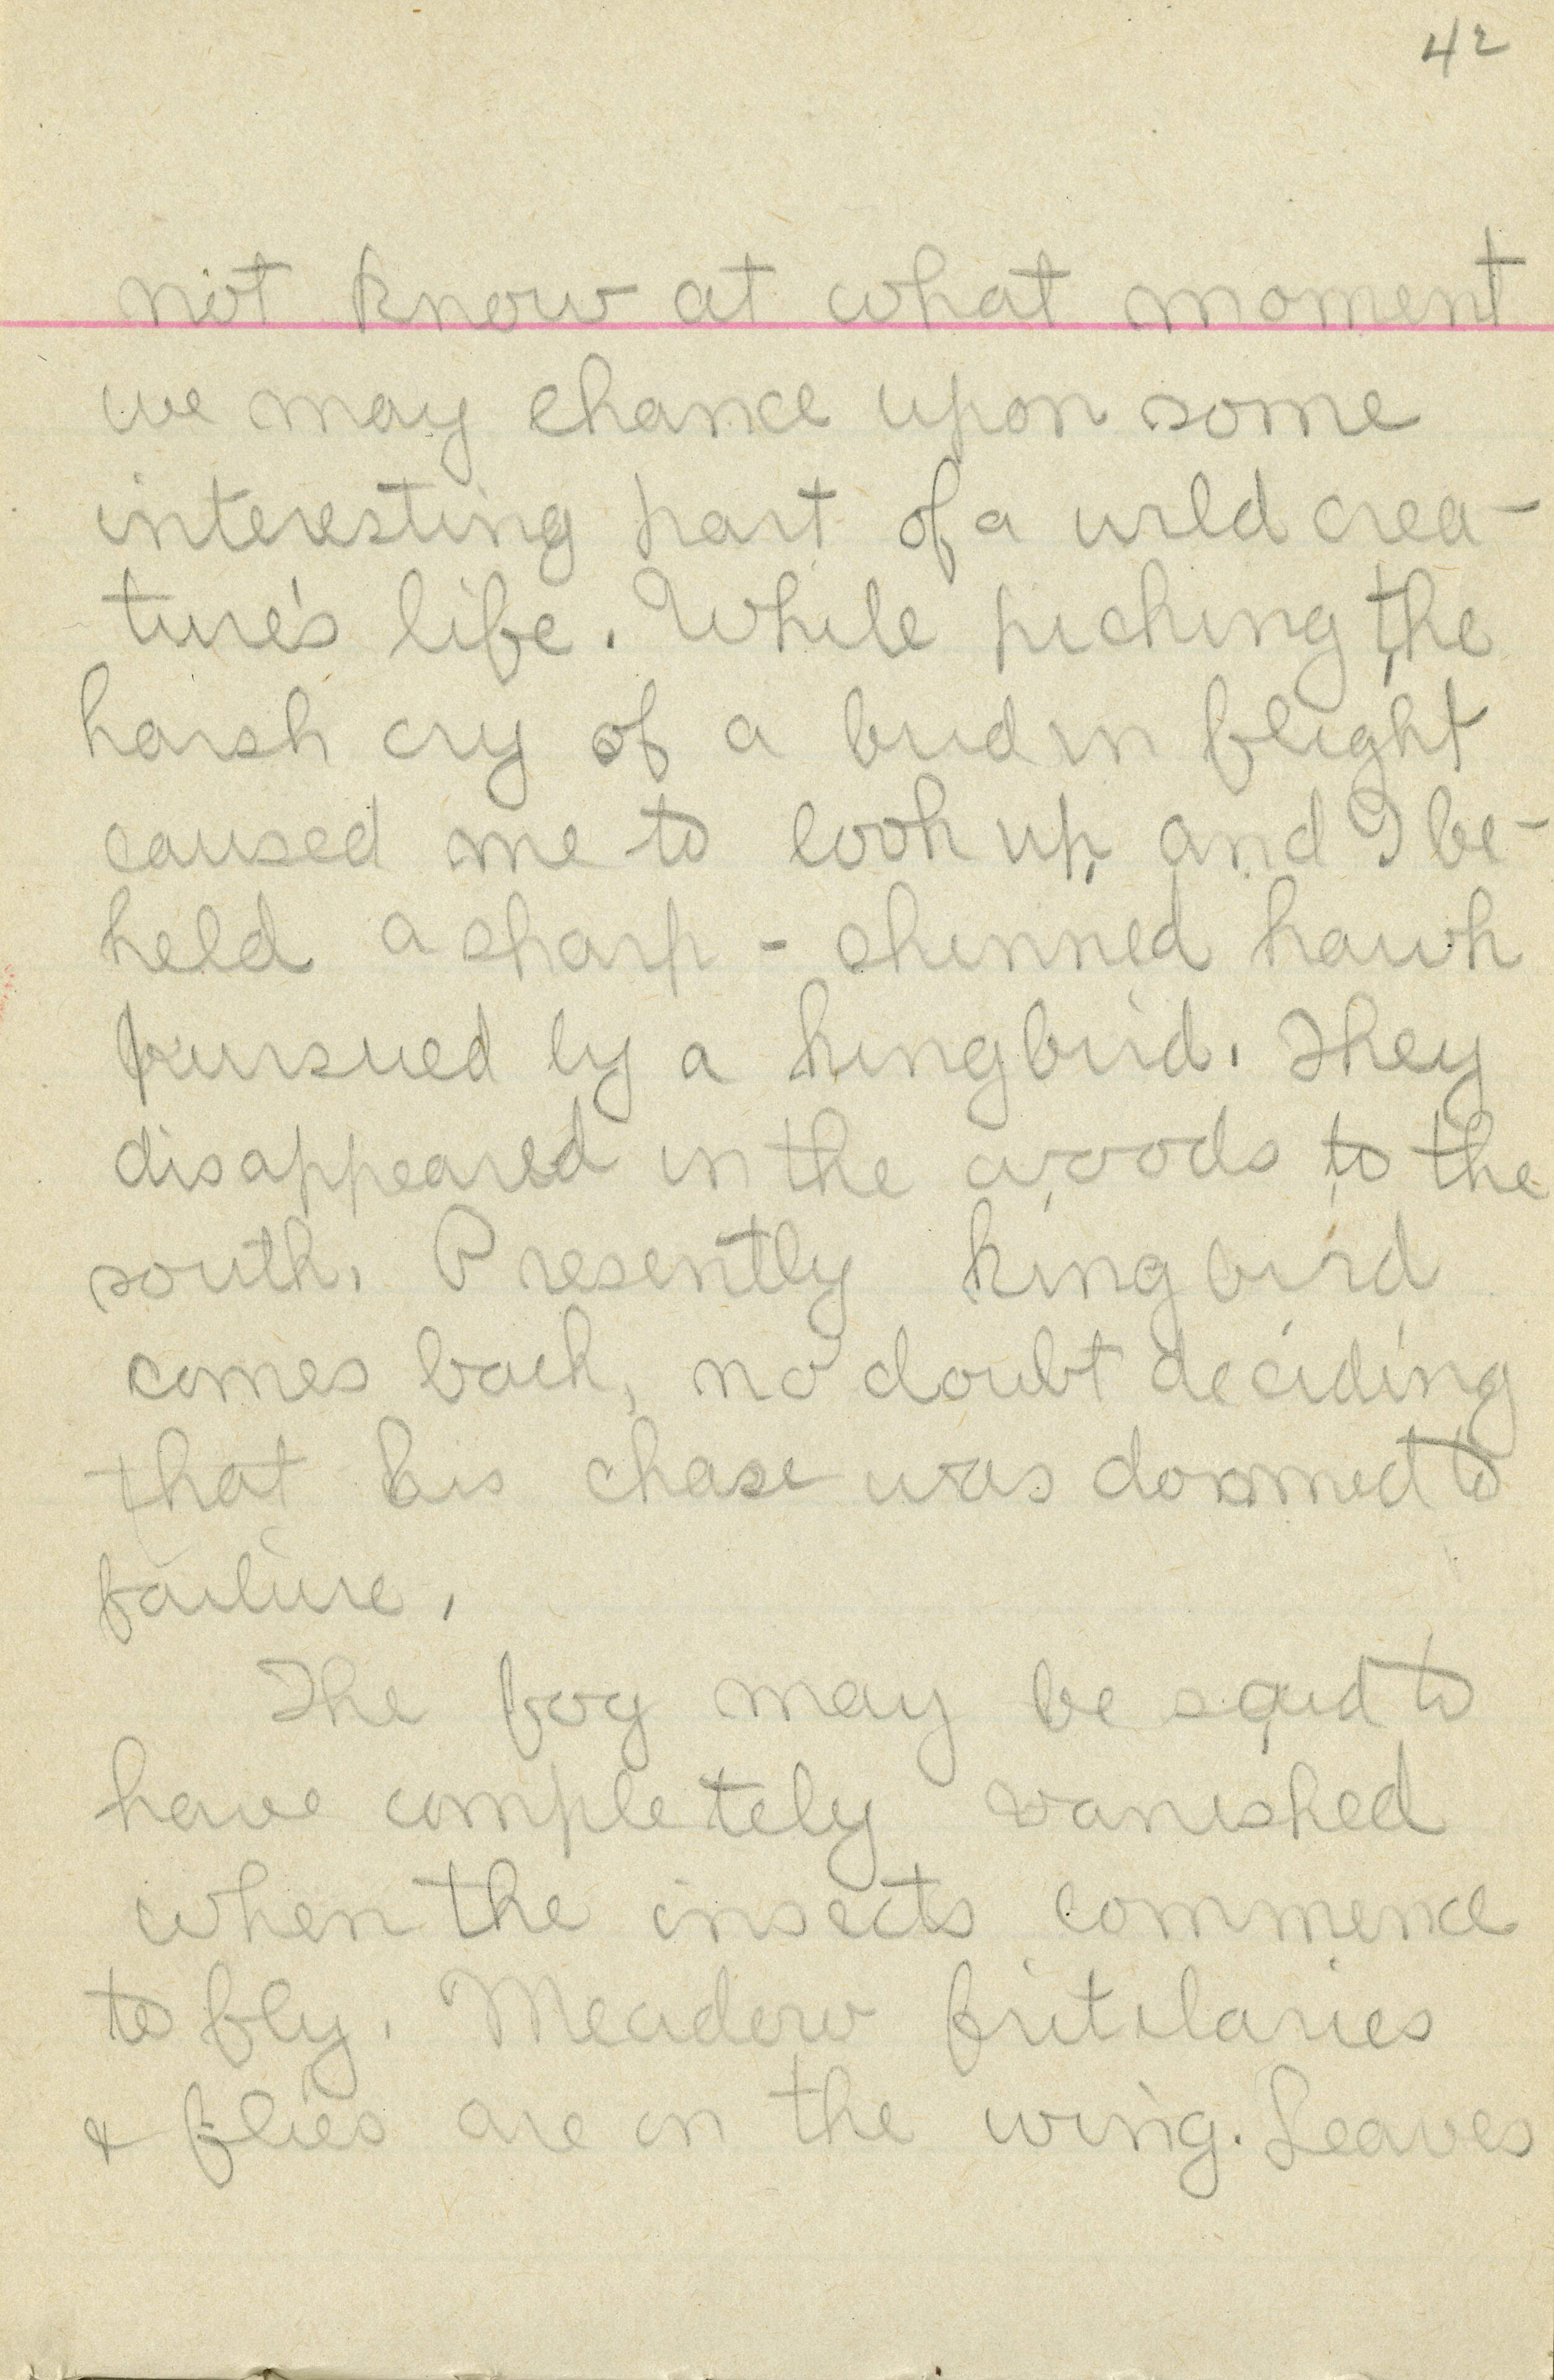 42
not know at what moment
we may chance upon some
interesting part of a wild crea-
ture's life. While picking the
harsh cry of a bird in flight
caused me to look up, and I be-
held a sharp-shinned hawk
pursued by a kingbird. They
disappeared in the woods to the
south. Presently kingbird
comes back, no doubt deciding
that his chase was doomed to
failure.
The fog may be said to
have completely vanished
when the insects commence
to fly. Meadow fritilaries
& flies are on the wing. Leaves